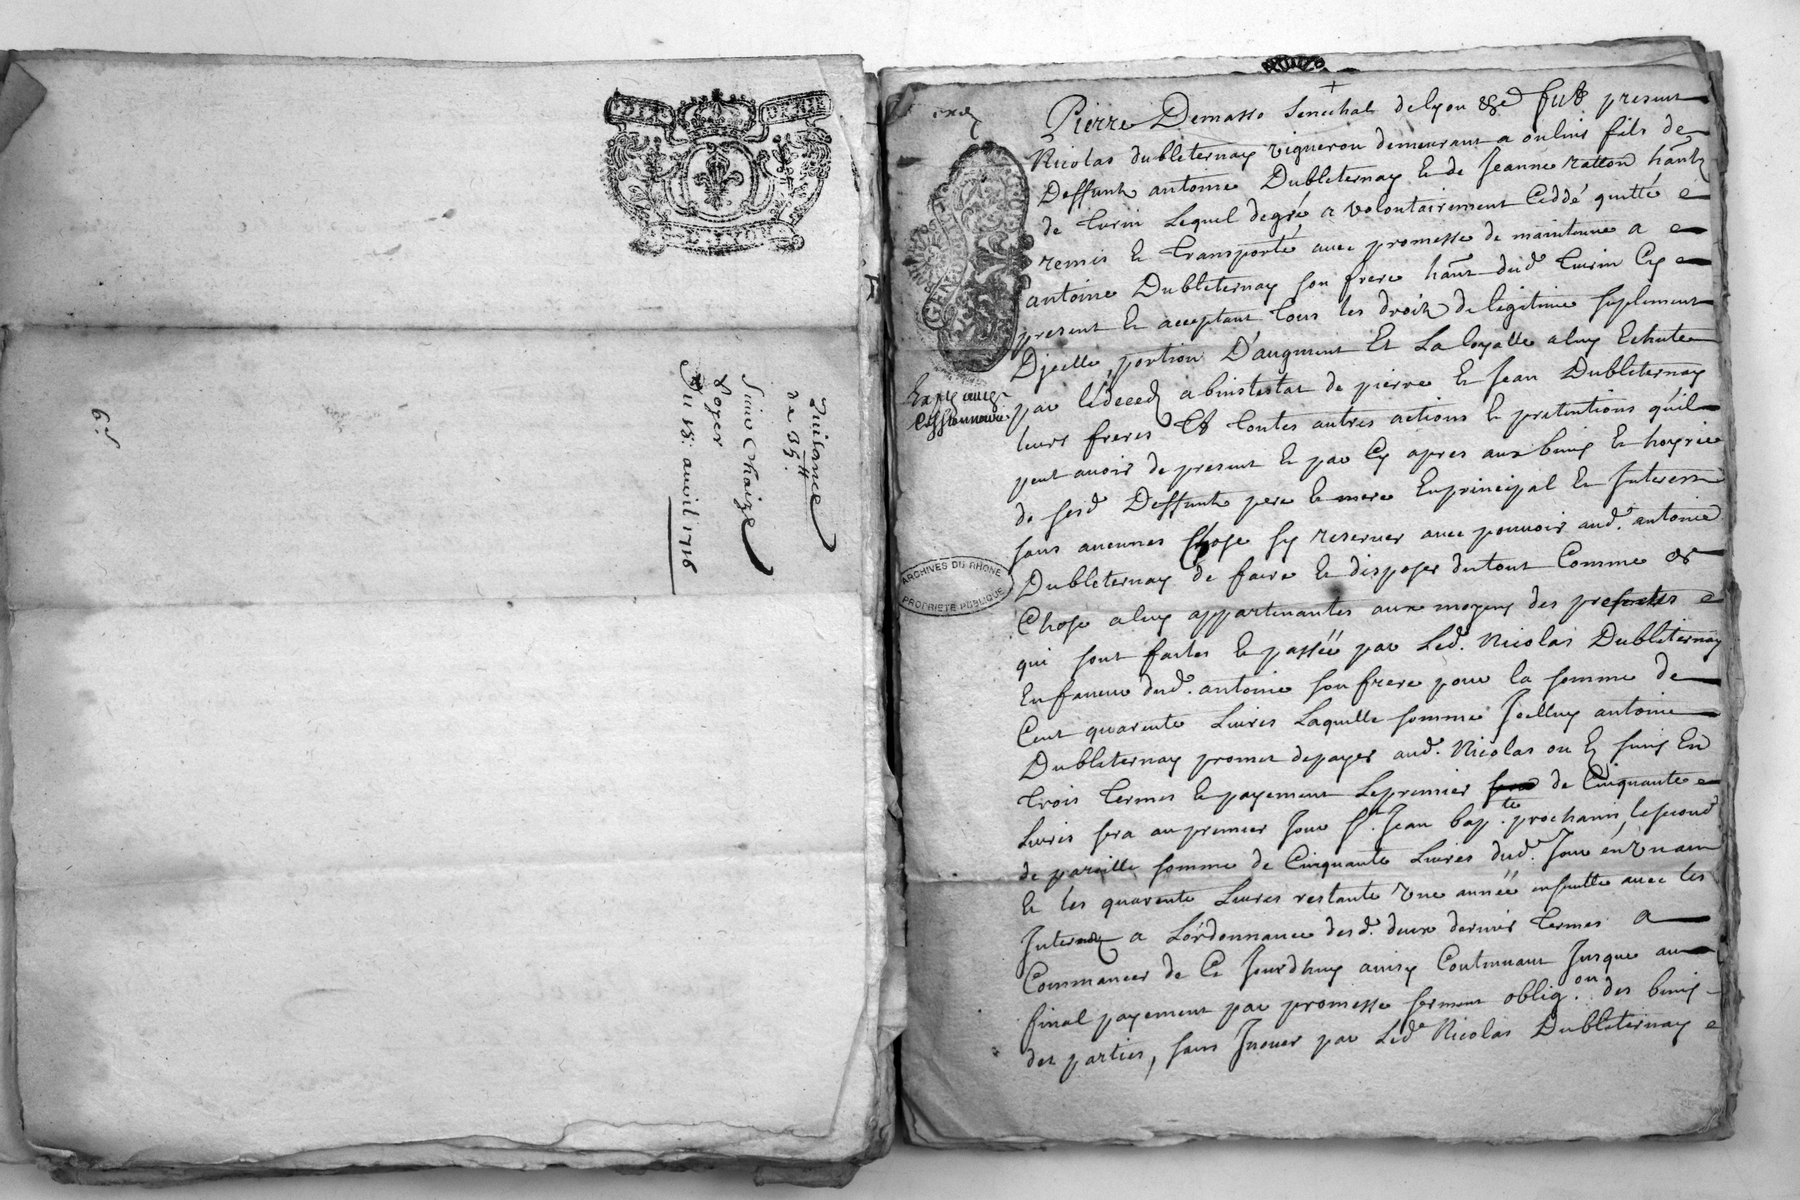 Quitance
de 35ᵗᵗ.
Suive Chaize
Voyer
Du 15: auvil 1716
6.s
GENERALITE
Exp.e aud.
Cessionnaire
ARCHIVES DU RHONE
PROPRIÉTÉ PUBLIQUE
Pierre Demasso Senechal de lyon &c fut present
Nicolas dubleternay vigneron demeurant a oulins fils de
Deffunts antoine Dubleternay & de Jeanne ratton hāntz
de Turin Lequel degré a volontairement Ceddé quitté
remis & transporté avec promesse de maintenue a
antoine Dubleternay son frere hānt dud. Turin Cy
present & acceptant tous les droits de legitime suplement
D'jcelle, portion D'augment Et La loyalle aluy Echute
par ledeced abinstestat de pierre & Jean Dubleternay
leurs freres Et toutes autres actions & pretentions qu'il
peut avoir de present & par Cy apres aux biens & hoyrie
de sesd. Deffunts pere & mere En principal & Interests
sans aucunes Chose sy reserver avec pouvoir aud. antoine
Dubleternay de faire & disposer dutout Comme de
Chose aluy appartenantes aux moyens des presentes
qui sont faites & passéé par Led. Nicolas Dubleternay
En faveur dud. antoine son frere pour la somme de
Cent quarente Livres Laquelle somme Jcelluy antoine
Dubleternay promet depayer aud. Nicolas ou Es siens En
trois termes & payement Lepremier de Cinquante
Livres sera au premier Jour St. Jean bapte. prochain, lesecond
de pareille somme de Cinquante Livres dud. Jour en Vn an
& les quarente Livres restante Vne année ensuitte avec les
Interests a L'ordonnance desd. deux derniers termes a
Commancer de Ce Jourdhuy ainsy Continuant Jusque au
final payement par promesse serment oblig.on des biens
des parties, sans Jnover par Led. Nicolas Dubleternay